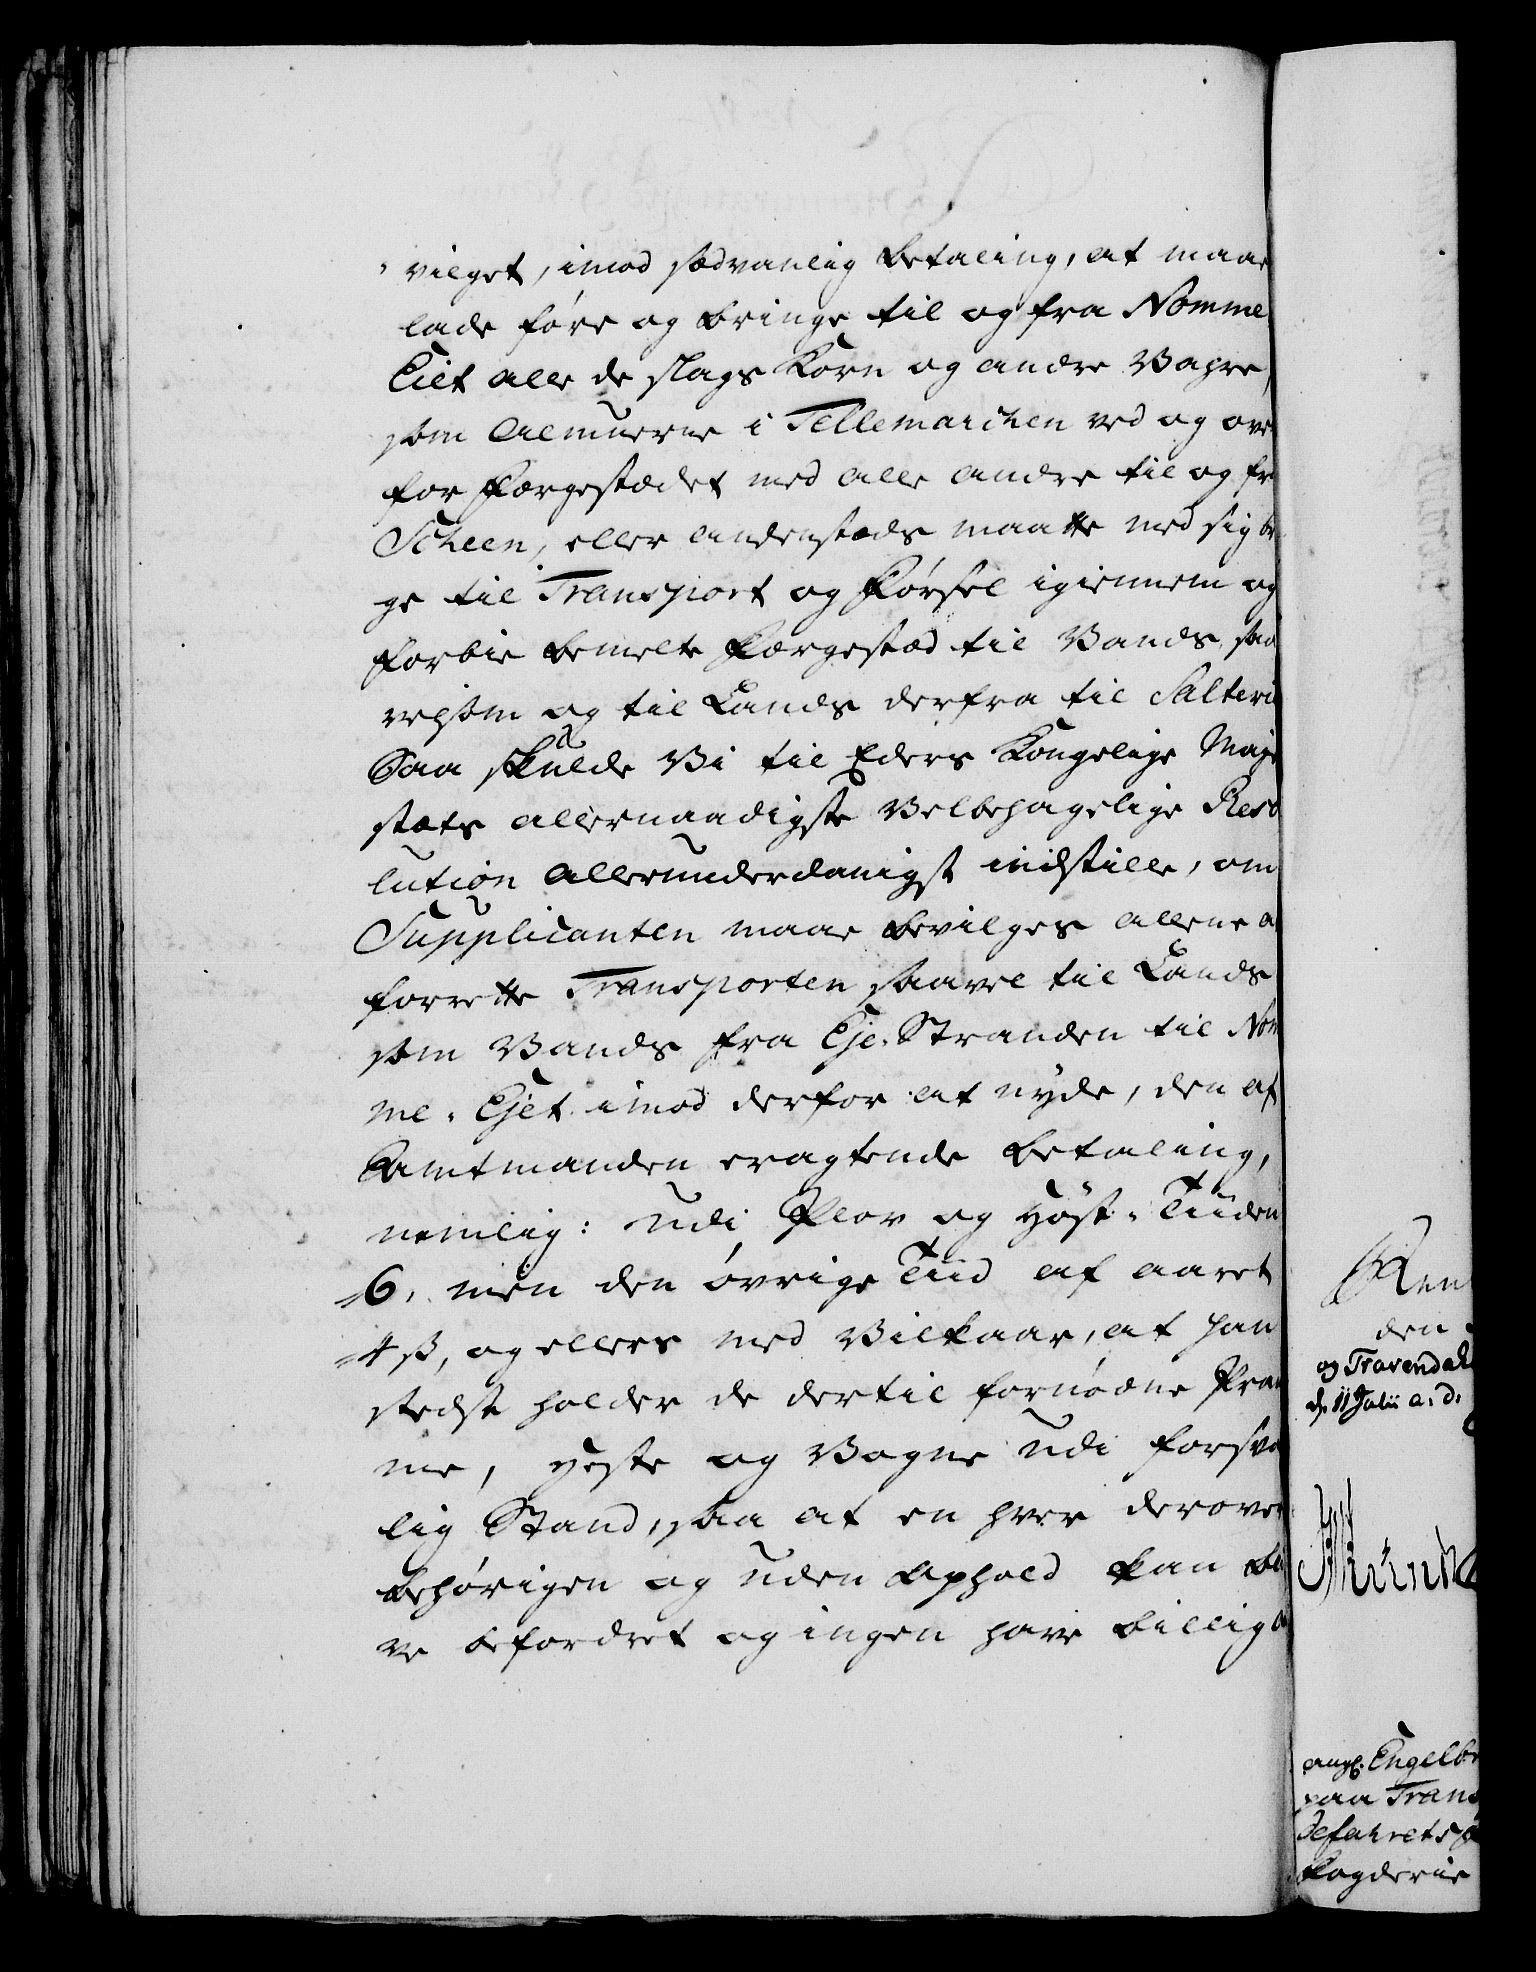 vilget, imod sædvanlig betaling, at maae
lade føre og bringe til og fra Nomme
Eiet alle de slags Korn og andre Vahre,
som Almuerne i Tellemarchen ved og ove
for Færgestædet med alle andre til og fr
Scheen, eller andenstæds maatte med sig br
ge til Transport og Førsel igiennem og
forbie bemelte Færgestæd til Vands, saa
velsom og til Lands derfra til Salteri
Saa skulde Vi til Eders Kongelige Maje
stæts allernaadigste Velbehagelige Reso
lution allerunderdanigst indstille, om
Supplicanten maae bevilges allene a
forrette Transporten saavel til Lands
som Vands fra Eje-Stranden til Nom
me-Ejet imod derfor at nyde, den af
Amtmanden eragtende betaling,
nemlig: udi Plov og Høst-Tiiden
6, men den øvrige Tiid af aaret
4 ß, og ellers med Vilkaar, at han
stedse holder de dertil fornødne Pram
me, Heste og Vogne udi forsva
lig Stand, saa at en hver derover
behørigen og uden Ophold kan bli
ve befordret og ingen have billig
Ren
den
og Travendahl
d. 11 Julii a. d.
angl. Engelbr
paa Trans
Jefahrets
Fogderie